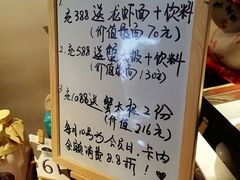 1. 充388送龙虾面+饮料
(价值最高70元)
2. 充588送蟹太极+饮料
(价值最高130元)
3. 充1088送蟹太极2份
(价值216元)
每月10号为会员日,卡内
余额消费8.8折!
6